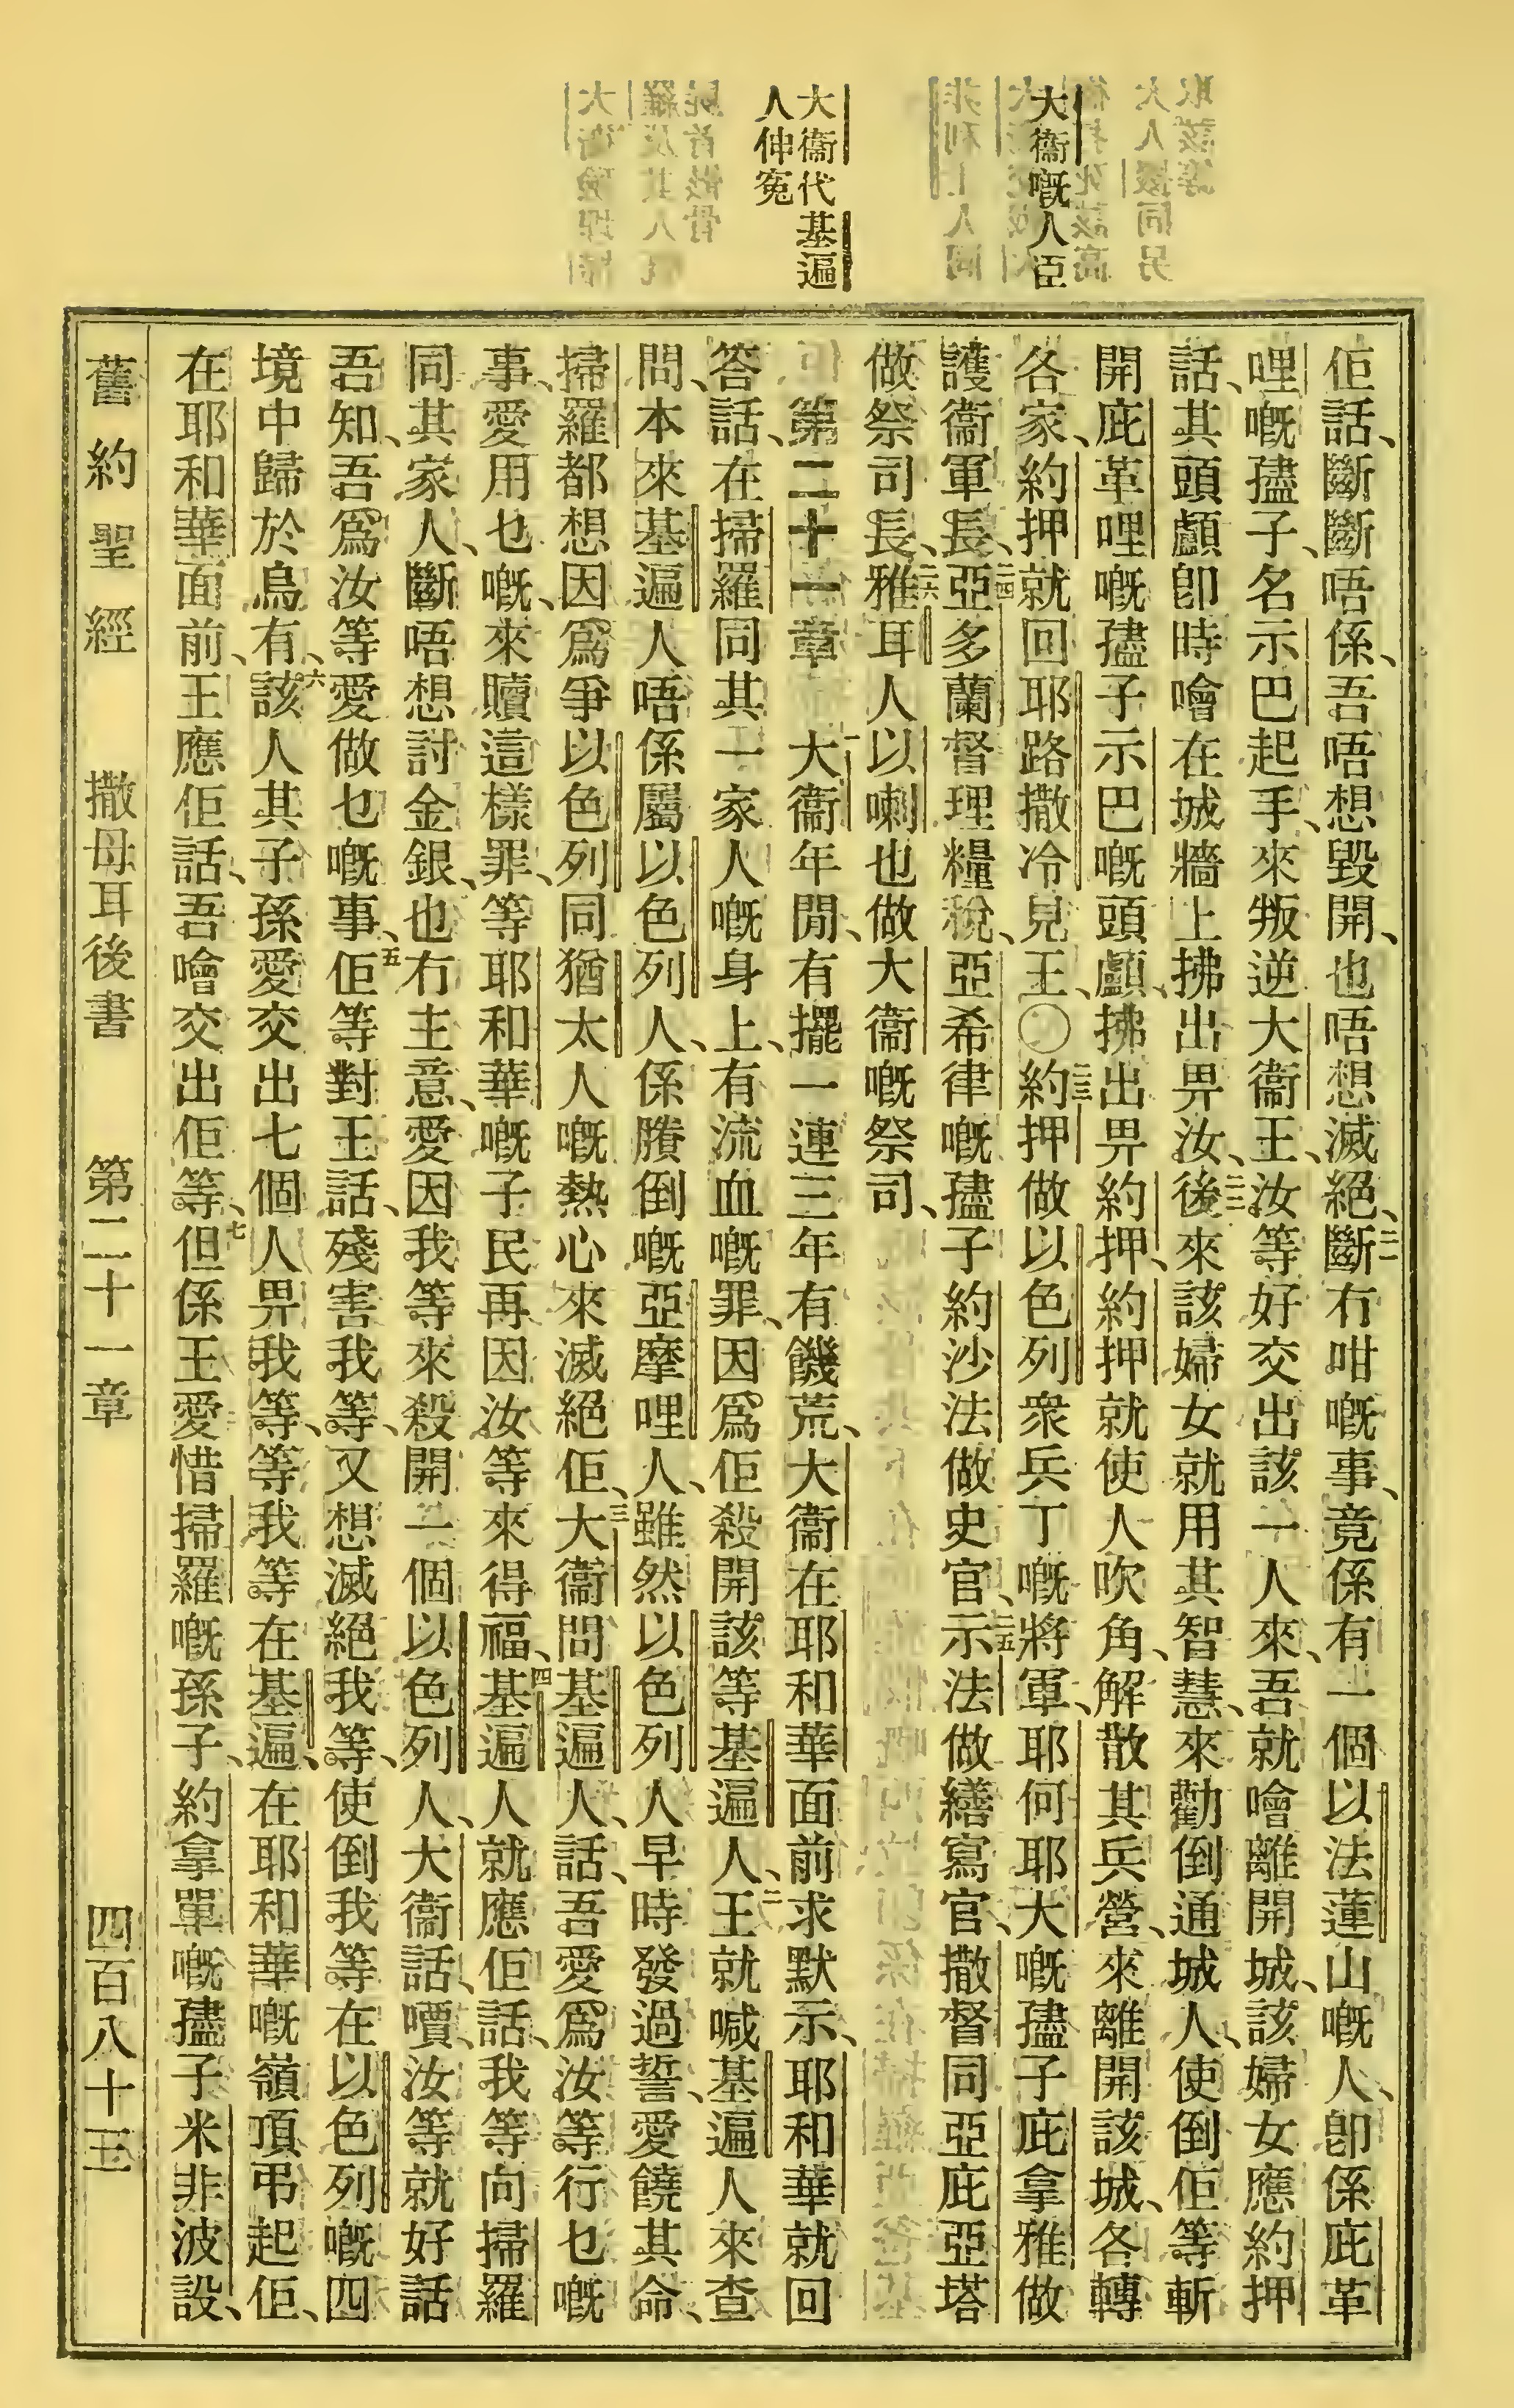 大衞嘅人臣
大衞代基遍
人伸冤
佢話、斷斷唔係、吾唔想毀開、也唔想滅絕、二一斷冇咁嘅事、竟係有一個以法蓮山嘅人、卽係庇革
哩嘅孻子、名示巴起手、來叛逆大衞王、汝等好交出該一人來、吾就噲離開城、該婦女應約押
話、其頭顱卽時噲在城牆上拂出畀汝、二二後來該婦女就用其智慧、來勸倒通城人、使倒佢等斬
開庇革哩嘅孻子示巴嘅頭顱、拂出畀約押、約押就使人吹角、解散其兵營、來離開該城、各轉
各家、約押就回耶路撒冷見王、〇二三約押做以色列衆兵丁嘅將軍、耶何耶大嘅孻子庇拿雅做
護衞軍長、二四亞多蘭督理糧稅、亞希律嘅孻子約沙法做史官、二五示法做繕寫官、撒督同亞庇亞塔
做祭司長、二六雅耳人以喇也做大衞嘅祭司、
第二十一章　一大衞年閒、有擺一連三年有饑荒、大衞在耶和華面前求默示、耶和華就回
答話、在掃羅同其一家人嘅身上、有流血嘅罪、因爲佢殺開該等基遍人、二王就喊基遍人來查
問、本來基遍人唔係屬以色列人、係賸倒嘅亞摩哩人、雖然以色列人早時發過誓、愛饒其命、
掃羅都想因爲爭以色列同猶太人嘅熱心來滅絕佢、三大衞問基遍人、話、吾愛爲汝等行乜嘅
事、愛用乜嘅、來贖這樣罪、等耶和華嘅子民再因汝等來得福、四基遍人就應佢話、我等向掃羅
同其家人、斷唔想討金銀、也冇主意、愛因我等來殺開一個以色列人、大衞話、嘪、汝等就好話
吾知、吾爲汝等愛做乜嘅事、五佢等對王話、殘害我等、又想滅絕我等、使倒我等在以色列嘅四
境中歸於烏有、六該人其子孫愛交出七個人畀我等、等我等在基遍、在耶和華嘅嶺頂弔起佢、
在耶和華面前、王應佢話、吾噲交出佢等、七但係王愛惜掃羅嘅孫子、約拿單嘅孻子米非波設、
舊約聖經　撒母耳後書　第二十一章　四百八十三